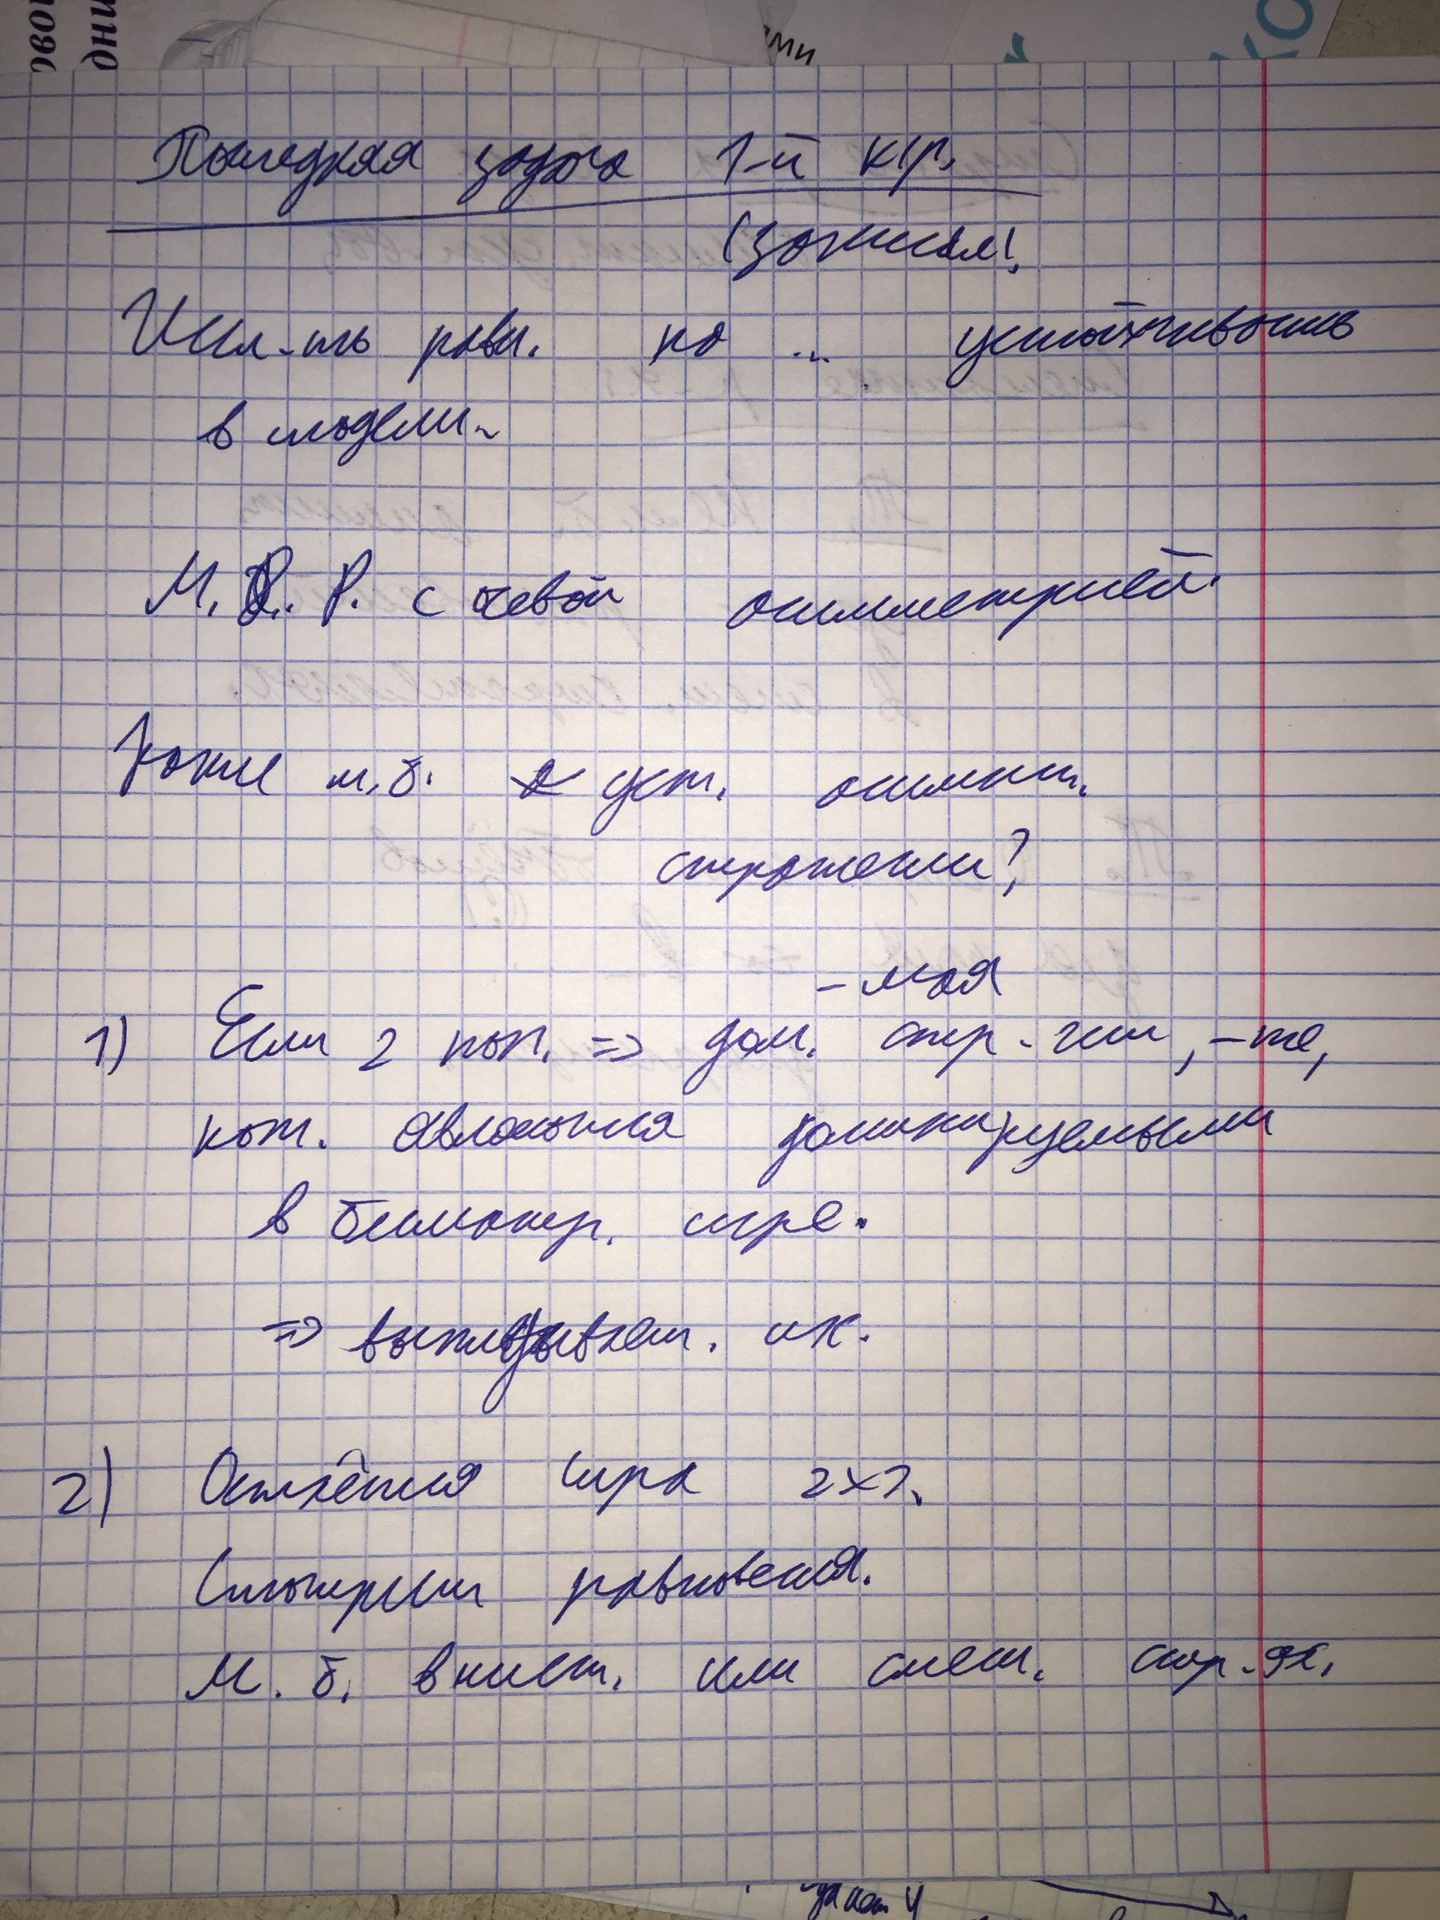 овой
дни
ями
Последняя задача 1-й к/р.
Исл-ть равн. на ... устойчивость
в модели
М. Д. Р. с чевой асимметрией.
Какие м.б. уст. асимпт.
стратегии?
- моя
1) Если 2 поп. => дом. стр-гии, - те,
кот. являются доминируемыми
в биматр. игре.
=> выкидываем. их.
2) Остаётся игра 2x2.
Смотрим равновесия.
М. б. в чист. или смеш. стр-ях.